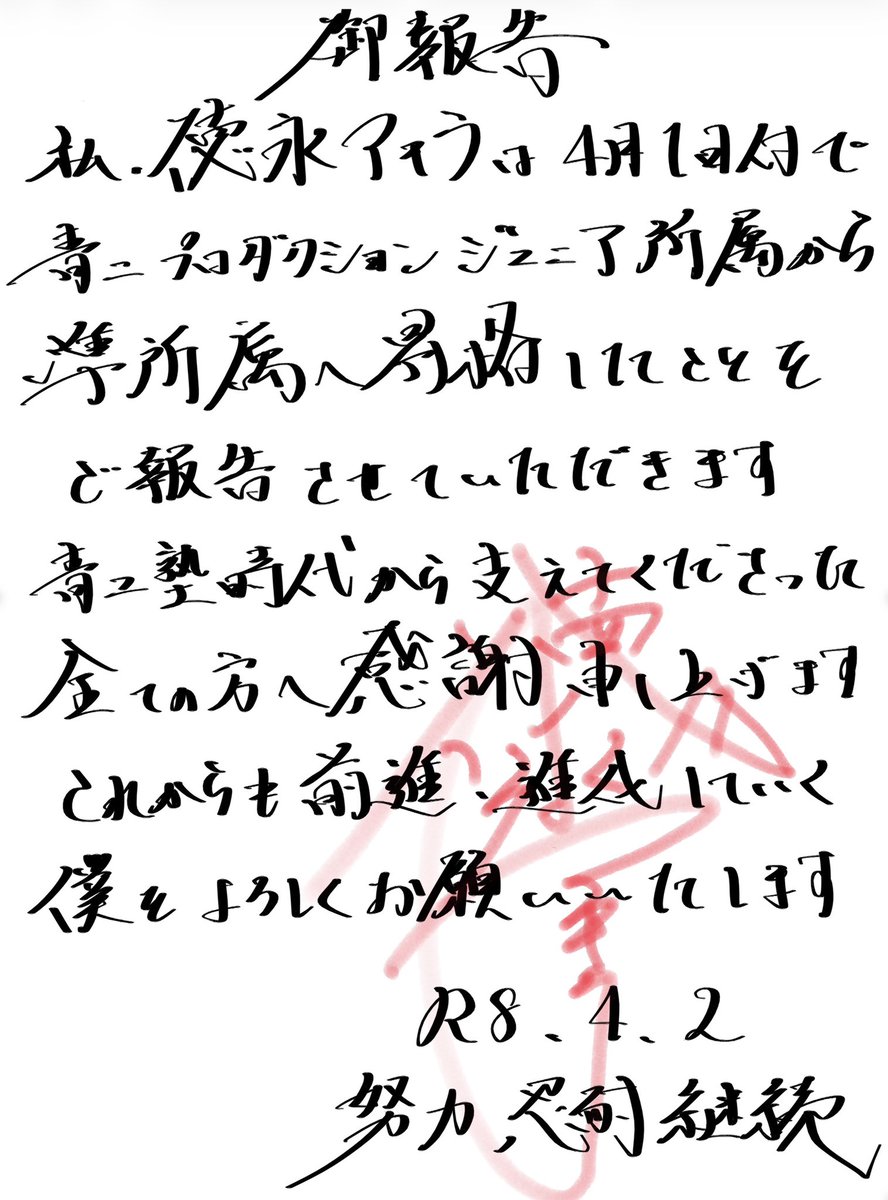 御報告
私、徳永アキラは4月1日付で
青二プロダクションジュニア所属から
準所属へ昇格したことを
ご報告させていただきます
青二塾時代から支えてくださった
全ての方へ感謝申し上げます
これからも前進、進化していく
僕をよろしくお願いいたします
R8.4.2
努力、忍耐、継続